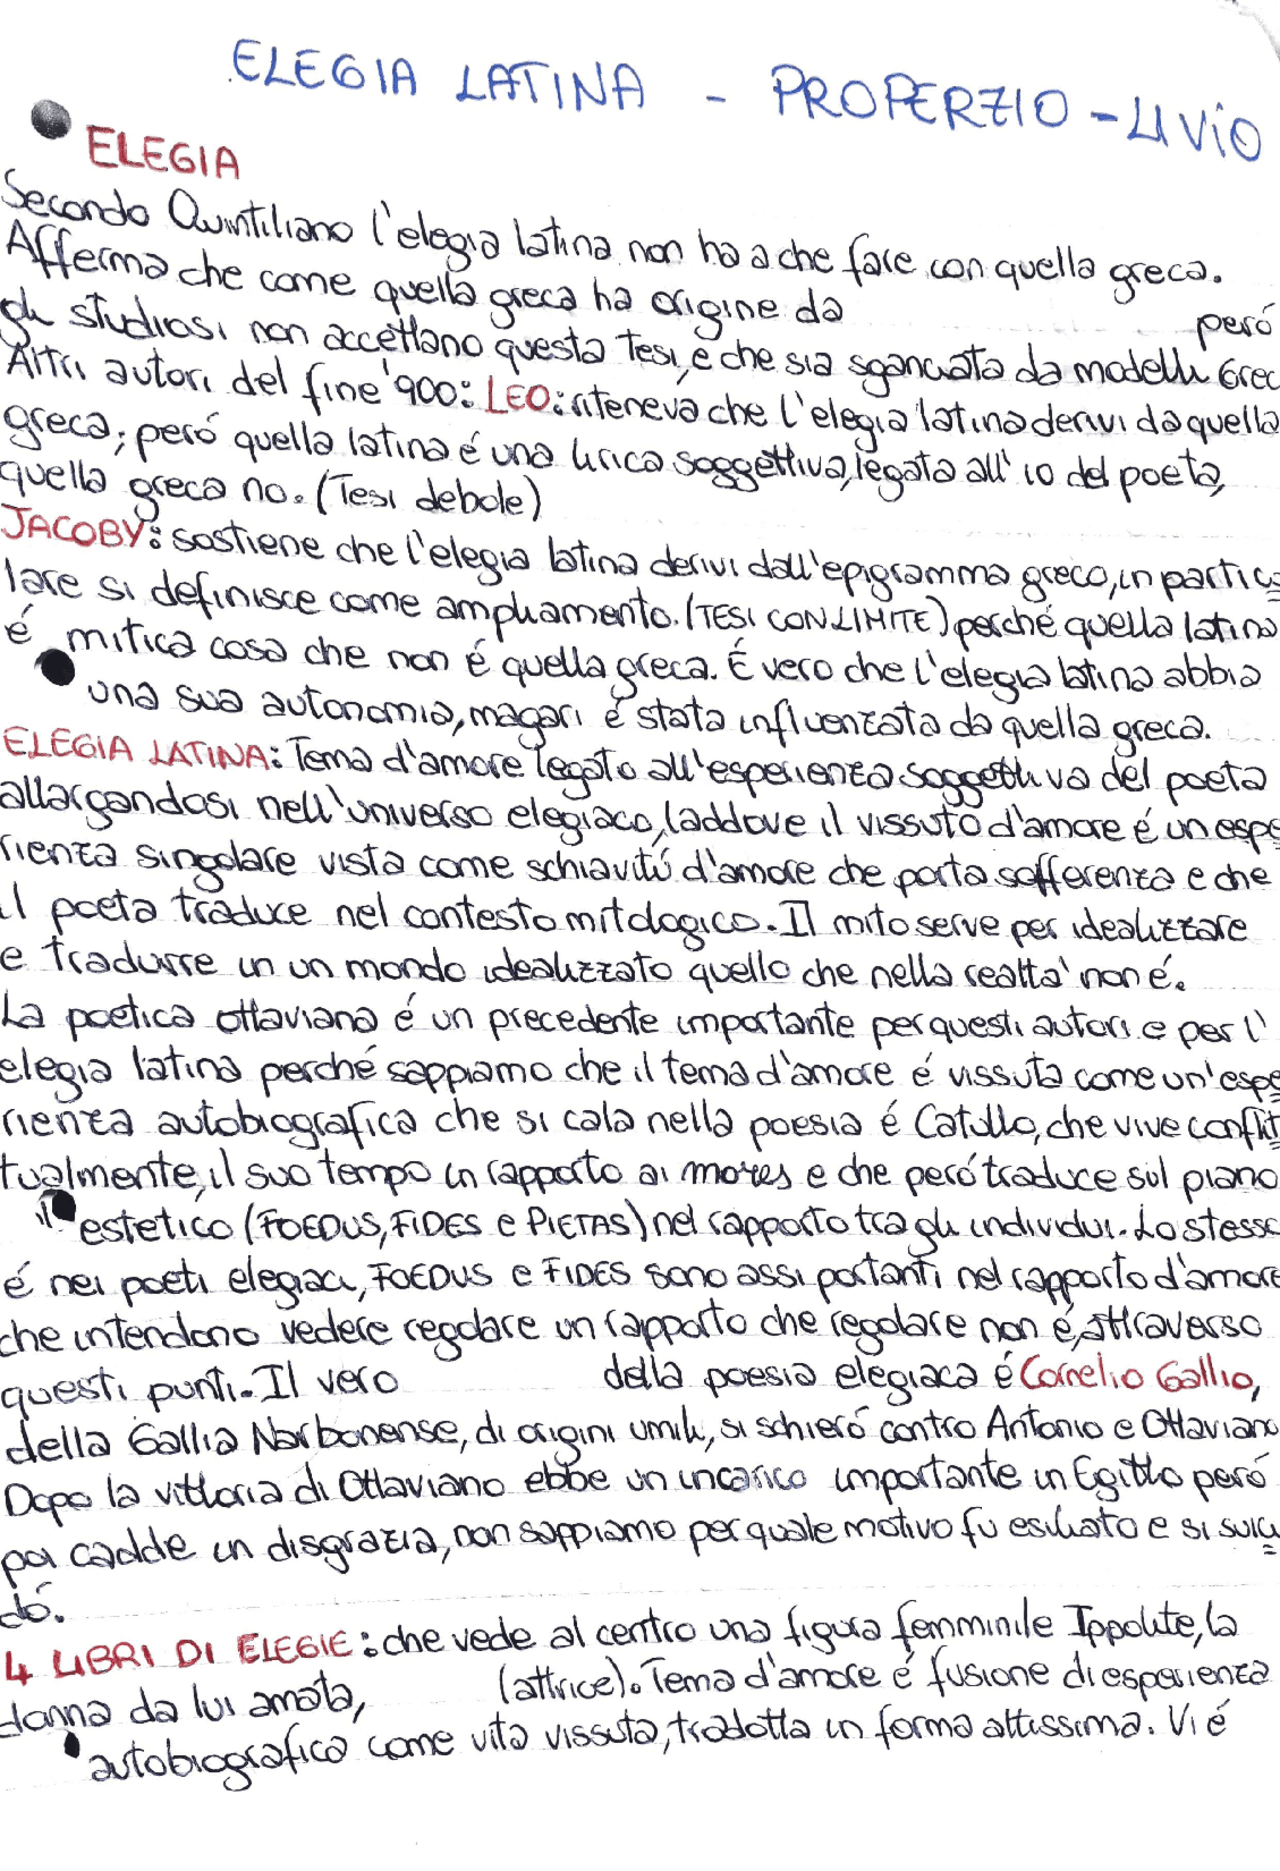 ELEGIA LATINA - PROPERZIO - LIVIO
ELEGIA
Secondo Quintiliano l'elegia latina non ha a che fare con quella greca.
Afferma che come quella greca ha origine da però
gli studiosi non accettano questa tesi, e che sia sganciata da modelli Grec
Altri autori del fine '900: LEO: riteneva che l'elegia latina derivi da quella
greca; però quella latina é una lirica soggettiva, legata all'io del poeta,
quella greca no. (Tesi debole)
JACOBY: sostiene che l'elegia latina derivi dall'epigramma greco, in partico
lare si definisce come ampliamento. (TESI CON LIMITE) perché quella latina
é mitica cosa che non é quella greca. É vero che l'elegia latina abbia
una sua autonomia, magari é stata influenzata da quella greca.
ELEGIA LATINA: Tema d'amore legato all'esperienza soggettiva del poeta
allargandosi nell'universo elegiaco, laddove il vissuto d'amore é un espe
rienza singolare vista come schiavitù d'amore che porta sofferenza e che
il poeta traduce nel contesto mitologico. Il mito serve per idealizzare
e tradurre in un mondo idealizzato quello che nella realtà non é.
La poetica ottaviana é un precedente importante per questi autori e per l'
elegia latina perché sappiamo che il tema d'amore é vissuta come un'espe
rienza autobiografica che si cala nella poesia é Catullo, che vive conflit
tualmente, il suo tempo in rapporto ai mores e che però traduce sul piano
il estetico (FOEDUS, FIDES e PIETAS) nel rapporto tra gli individui. Lo stesso
é nei poeti elegiaci, FOEDUS e FIDES sono assi portanti nel rapporto d'amore
che intendono vedere regolare un rapporto che regolare non é, attraverso
questi punti. Il vero della poesia elegiaca é Cornelio Gallio,
della Gallia Narbonense, di origini umili, si schierò contro Antonio e Ottaviano
Dopo la vittoria di Ottaviano ebbe un incarico importante in Egitto però
poi cadde in disgrazia, non sappiamo per quale motivo fu esiliato e si suici
dò.
4 LIBRI DI ELEGIE: che vede al centro una figura femminile Ippolite, la
donna da lui amata, (attrice). Tema d'amore é fusione di esperienza
autobiografica come vita vissuta, tradotta in forma altissima. Vi é